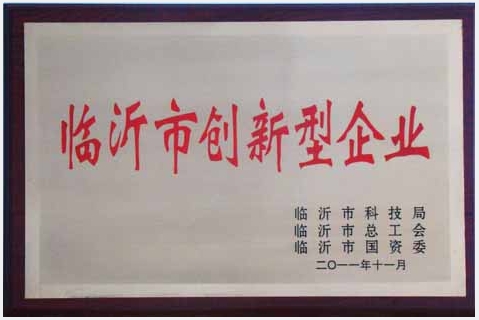 临沂市创新型企业
临沂市科技局
临沂市总工会
临沂市国资委
二〇一一年十一月